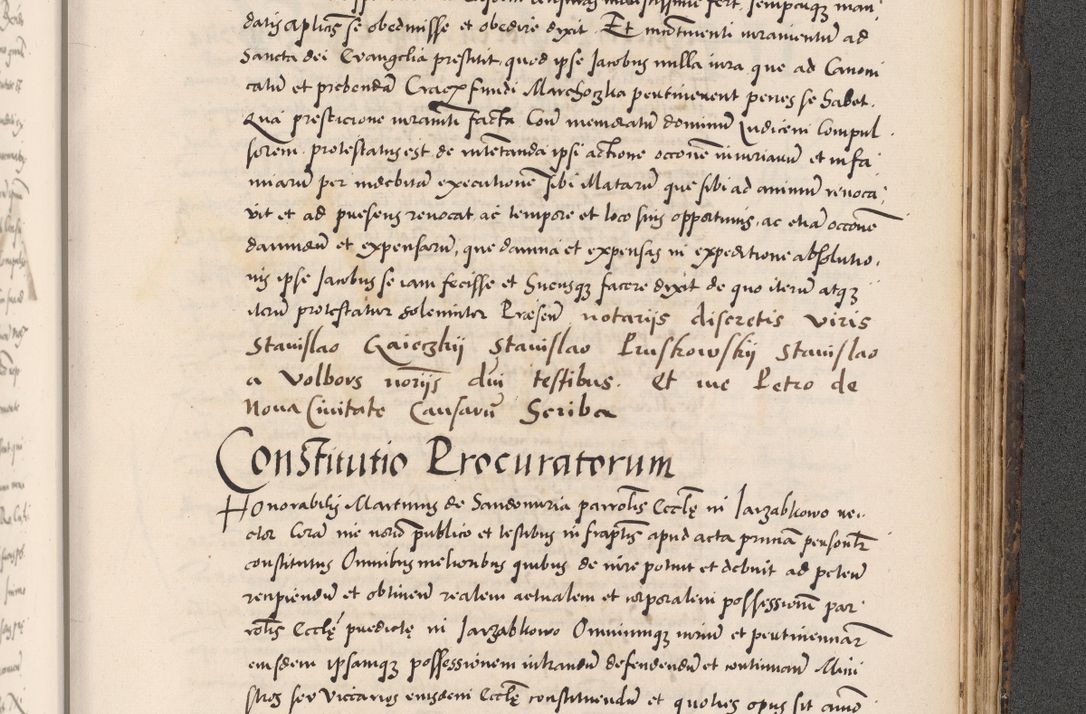 datis aplicis se obedivisse et obedire dixit. Et incontinenti iuramentum ad
Sancta dei Evangelia prestitit, quod ipse Jacobus nulla iura que ad Canoni
catum et prebendam Crac fundi Marchoczka pertinerent penes se habet.
Qua prestacione iuramenti facta Coram memoratum dominum Iudicem Compul
sorem protestatus est de intentanda ipsi actione occone iniuriarum et infa
miarum per indebitam executionem sibi illatarum que sibi ad animum revoca
vit et ad praesens revocat ac tempore et loco suis opportunis, ac etiam occone
damnorum et expensarum, que damna et expensas in expeditione absolutio
nis ipse Jacobus se iam fecisse et hucusq facere dixit de quo iterum atq
iterum protestatur solemniter Praesen notariis discretis viris
Stanislao Gaieczkij Stanislao Pruskowskij Stanislao
a Volbors noriis dni testibus. Et me Petro de
Nova Civitate Causarum Scriba
Constitutio Procuratorum
Honorabilis Martinus de Sandomiria parrolis Ecclę in Jarzabkowo re
ctor Coram me norio publico et testibus infraptis apud acta pntia personlr
constitutus Omnibus melioribus quibus de iure potuit et debuit ad petend
recipiendum et obtinend realem actualem et corporalem possessionem par
rolis Ecclę predictę in Jarzabkowo Omniumq iurium et pertinentiar
eiusdem ipsamq possessionem intrandum defendendum et continuand Mini
stros seu Viccarios eiusdem Ecclę constituendum et quoties opus sit amo